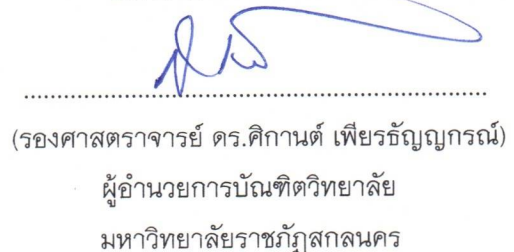 (รองศาสตราจารย์ ดร.ศิกานต์ เพียรธัญญกรณ์)
ผู้อำนวยการบัณฑิตวิทยาลัย
มหาวิทยาลัยราชภัฏสกลนคร